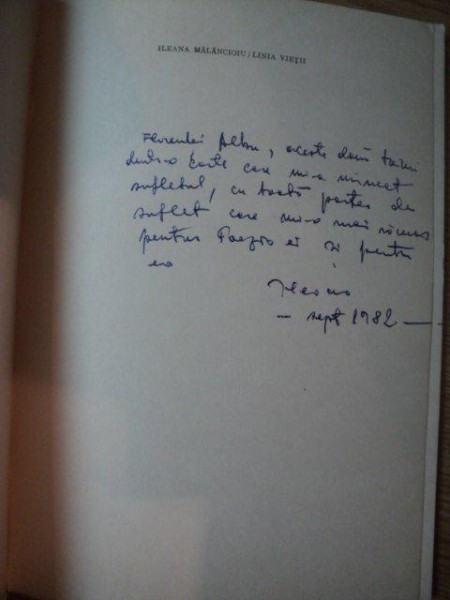 ILEANA MĂLĂNCIOIU / LINIA VIEȚII
Florenței Albu, aceste două
dintr-o carte care mi-a mîncat
sufletul, cu toată partea de
suflet care mi-a mai rămas
pentru Poezia ei și pentru
ea
Ileana
— sept 1982 —